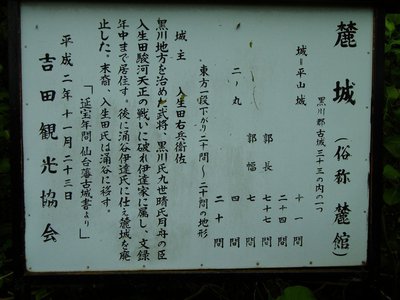 麓城(俗称 麓館)
黒川郡古城三十三の内の一つ
城=平山城 十一間
二十四間
郭長 七十七間
郭幅 七間
二ノ丸 二十間
東方一段下がり二十間〜二十間の地形
城主 入生田右兵衛佐
黒川地方を治めた武将、黒川氏九世晴氏月舟の臣
入生田駿河天正の戦いに破れ伊達家に属し、文録
年中まで居住す。後に涌谷伊達氏に仕え麓城を廃
止した。末裔、入生田氏は涌谷に移す。
「延宝年間 仙台藩古城書より」
平成二年十一月二十三日
吉田観光協会